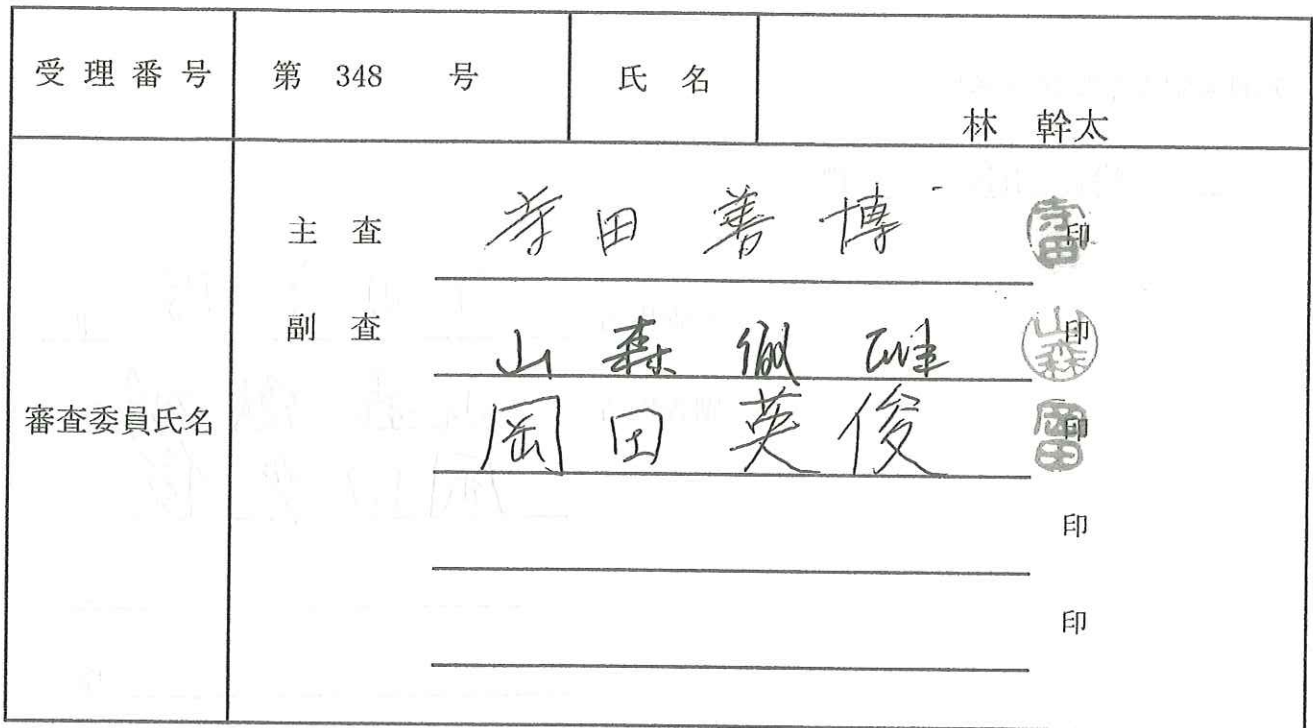 受理番号 第 348 号 氏名 林 幹太
審査委員氏名
主査 寺田善博 寺田 印
副査 山森徹雄 山森 印
岡田英俊 岡田 印
印
印